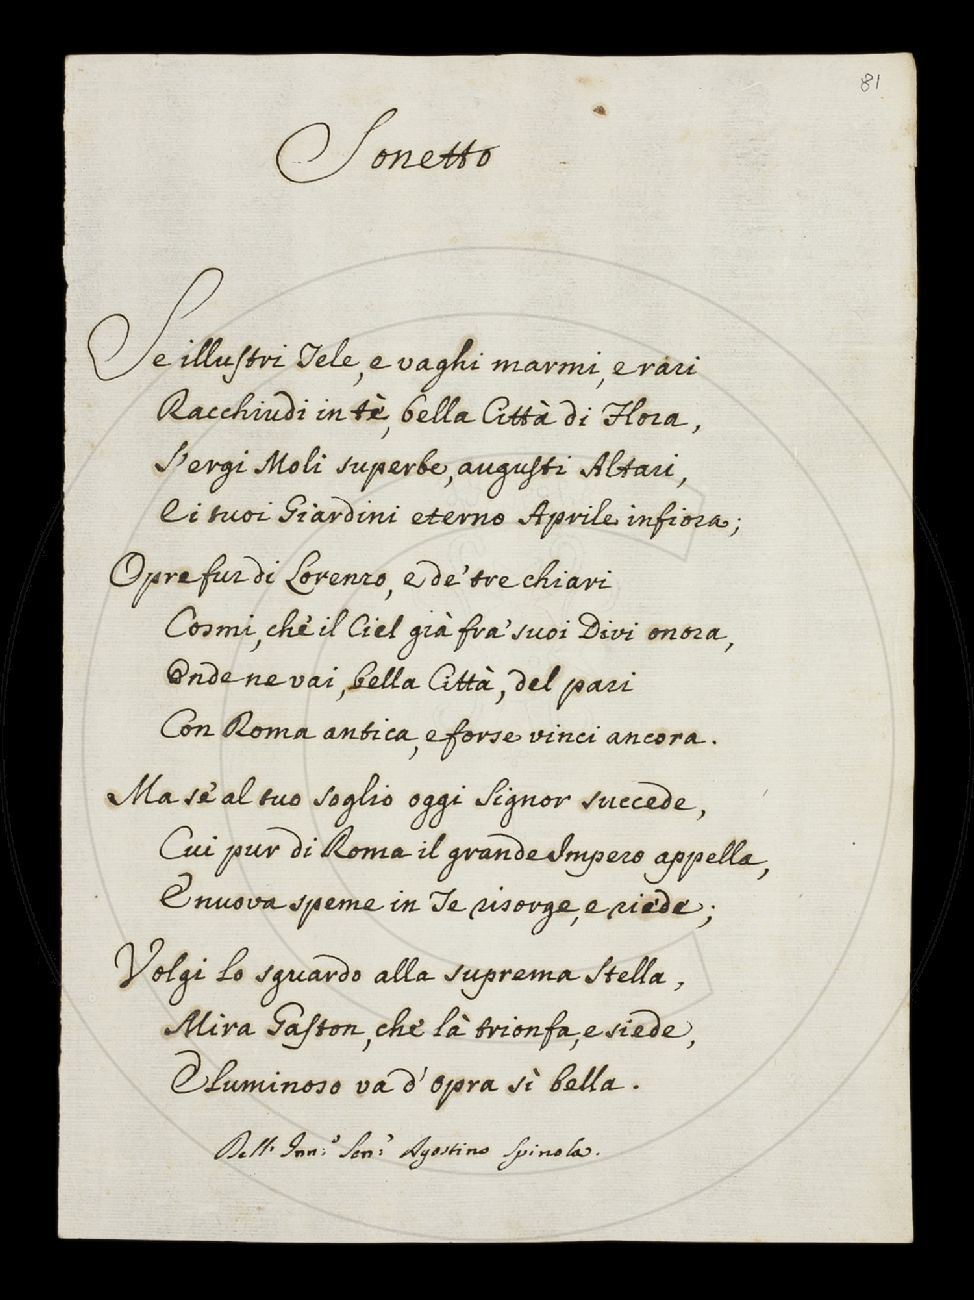 81
Sonetto
Se illustri Tele, e vaghi marmi, e rari
Racchiudi in tè, bella Città di Flora,
S'ergi Moli superbe, augusti Altari,
E i tuoi Giardini eterno Aprile infiora;
Opre fur di Lorenzo, e de' tre chiari
Cosmi, che il Ciel già fra' suoi Divi onora,
Onde ne vai, bella Città, del pari
Con Roma antica, e forse vinci ancora.
Ma se al tuo soglio oggi Signor succede,
Cui pur di Roma il grande Impero appella,
E nuova speme in Te risorge, e riede;
Volgi lo sguardo alla suprema Stella,
Mira Gaston, che là trionfa, e siede,
E luminoso va d'opra sì bella.
Dell' Agostino Spinola.